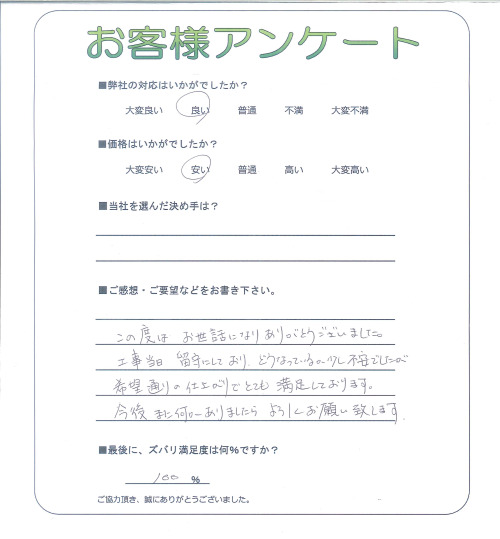 お客様アンケート
■弊社の対応はいかがでしたか?
大変良い 良い 普通 不満 大変不満
■価格はいかがでしたか?
大変安い 安い 普通 高い 大変高い
■当社を選んだ決め手は?
■ご感想・ご要望などをお書き下さい。
この度は お世話になり ありがとうございました。
工事当日 留守にしており、どうなっているのか少し不安でしたが
希望通りの仕上がりでとても 満足しております。
今後 また何かありましたら よろしくお願い致します。
■最後に、ズバリ満足度は何%ですか?
100 %
ご協力頂き、誠にありがとうございました。